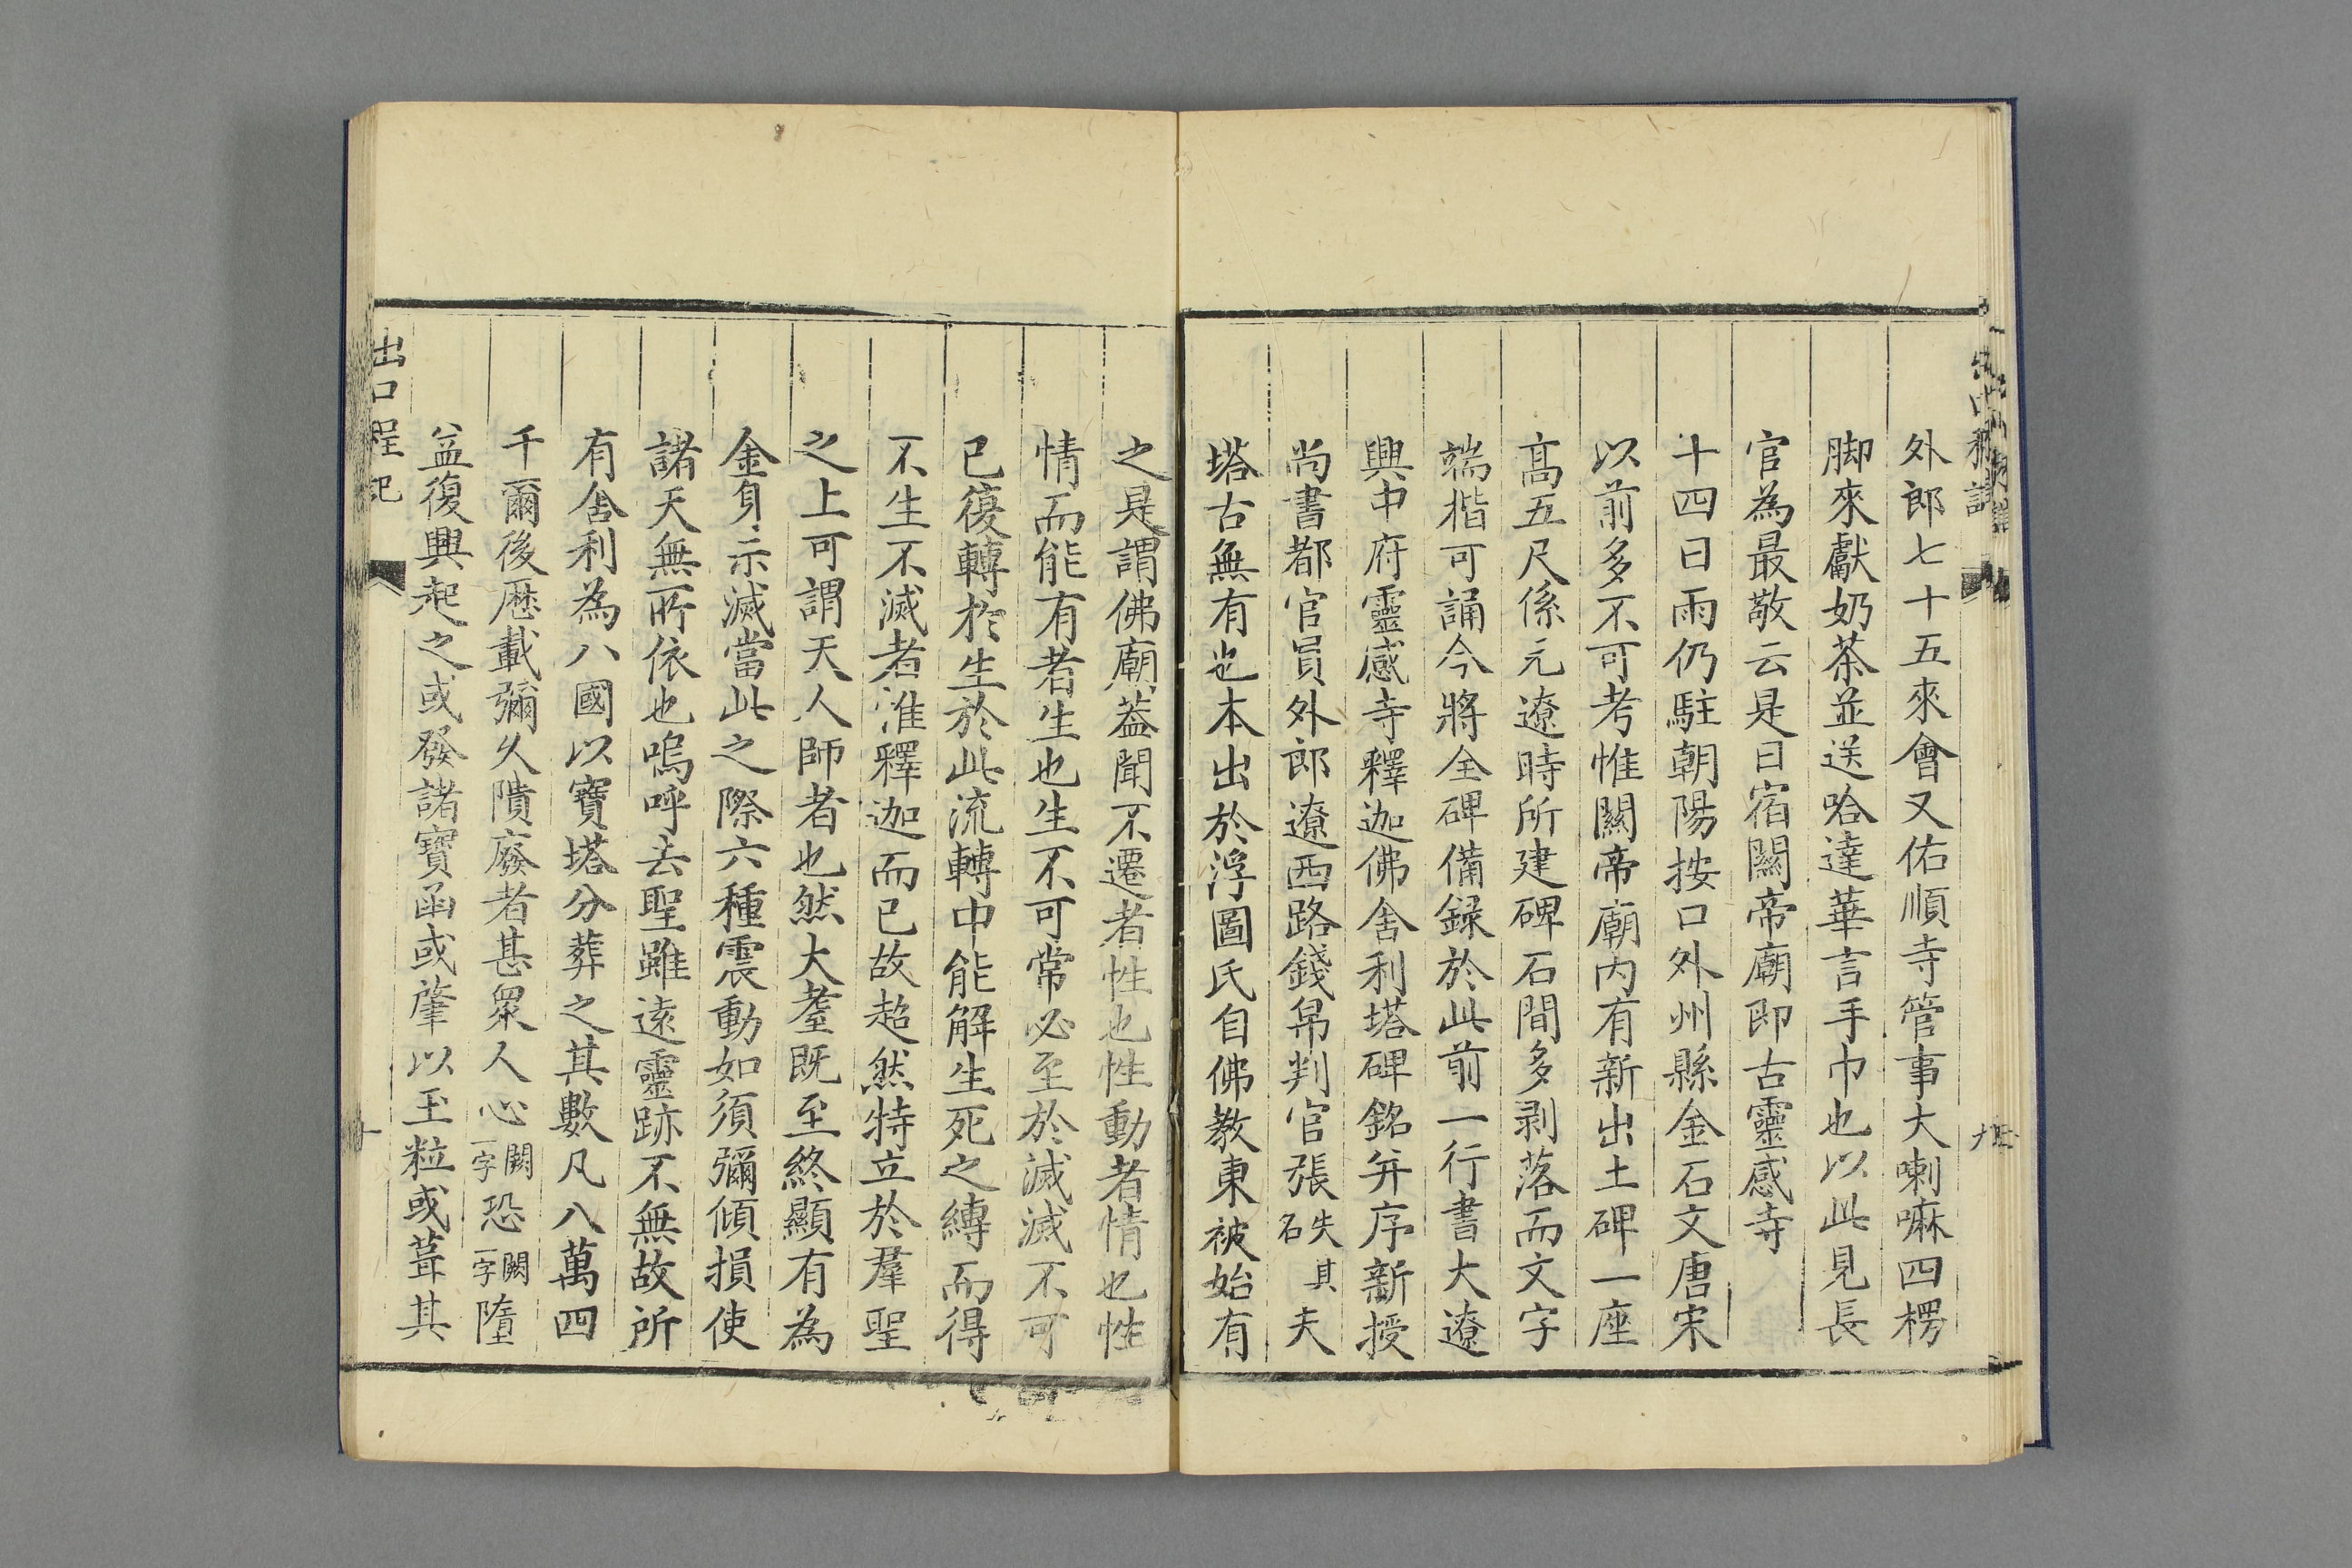 外郎七十五來會又佑順寺管事大喇嘛四楞
脚來獻奶茶並送哈達華言手巾也以此見長
官為最敬云是日宿關帝廟即古靈感寺
十四日雨仍駐朝陽按口外州縣金石文唐宋
以前多不可考惟關帝廟内有新出土碑一座
高五尺係元遼時所建碑石間多剥落而文字
端楷可誦今將全碑備録於此前一行書大遼
興中府靈感寺釋迦佛舍利塔碑銘并序新授
尚書都官員外郎遼西路錢帛判官張失其名夫
塔古無有也本出於浮圖氏自佛教東被始有
之是謂佛廟葢聞不遷者性也性動者情也性
情而能有者生也生不可常必至於滅滅不可
已復轉於生於此流轉中能解生死之縳而得
不生不滅者淮釋迦而已故超然特立於羣聖
之上可謂天人師者也然大耋既至終顯有為
金身示滅當此之際六種震動如須彌傾損使
諸天無所依也嗚呼去聖雖遠靈跡不無故所
有舍利為八國以寶塔分葬之其數凡八萬四
千爾後歷載彌久隤廢者甚衆人心闕一字恐闕一字墮
益復興起之或發諸寶函或肇以玉粒或葺其
出口程記
十